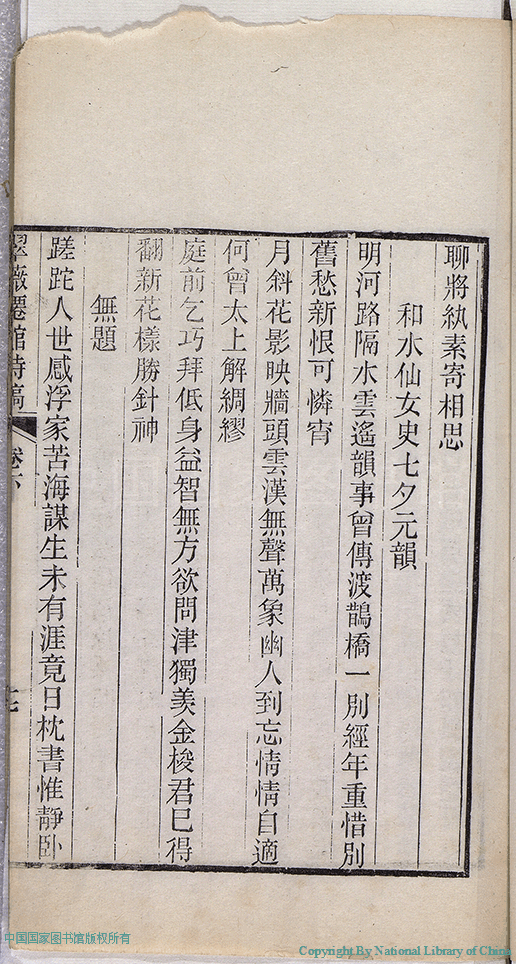 聊將紈素寄相思
和水仙女史七夕元韻
明河路隔水雲遙韻事曾傳渡鵲橋一別經年重惜別
舊愁新恨可憐宵
月斜花影映牆頭雲漢無聲萬象幽人到忘情情自適
何曾太上解綢繆
庭前乞巧拜低身益智無方欲問津獨羨金梭君已得
翻新花樣勝針神
無題
蹉跎人世感浮家苦海謀生未有涯竟日枕書惟靜臥
館詩稿
卷六
十七
中国国家图书馆版权所有
Copyright By National Library of China